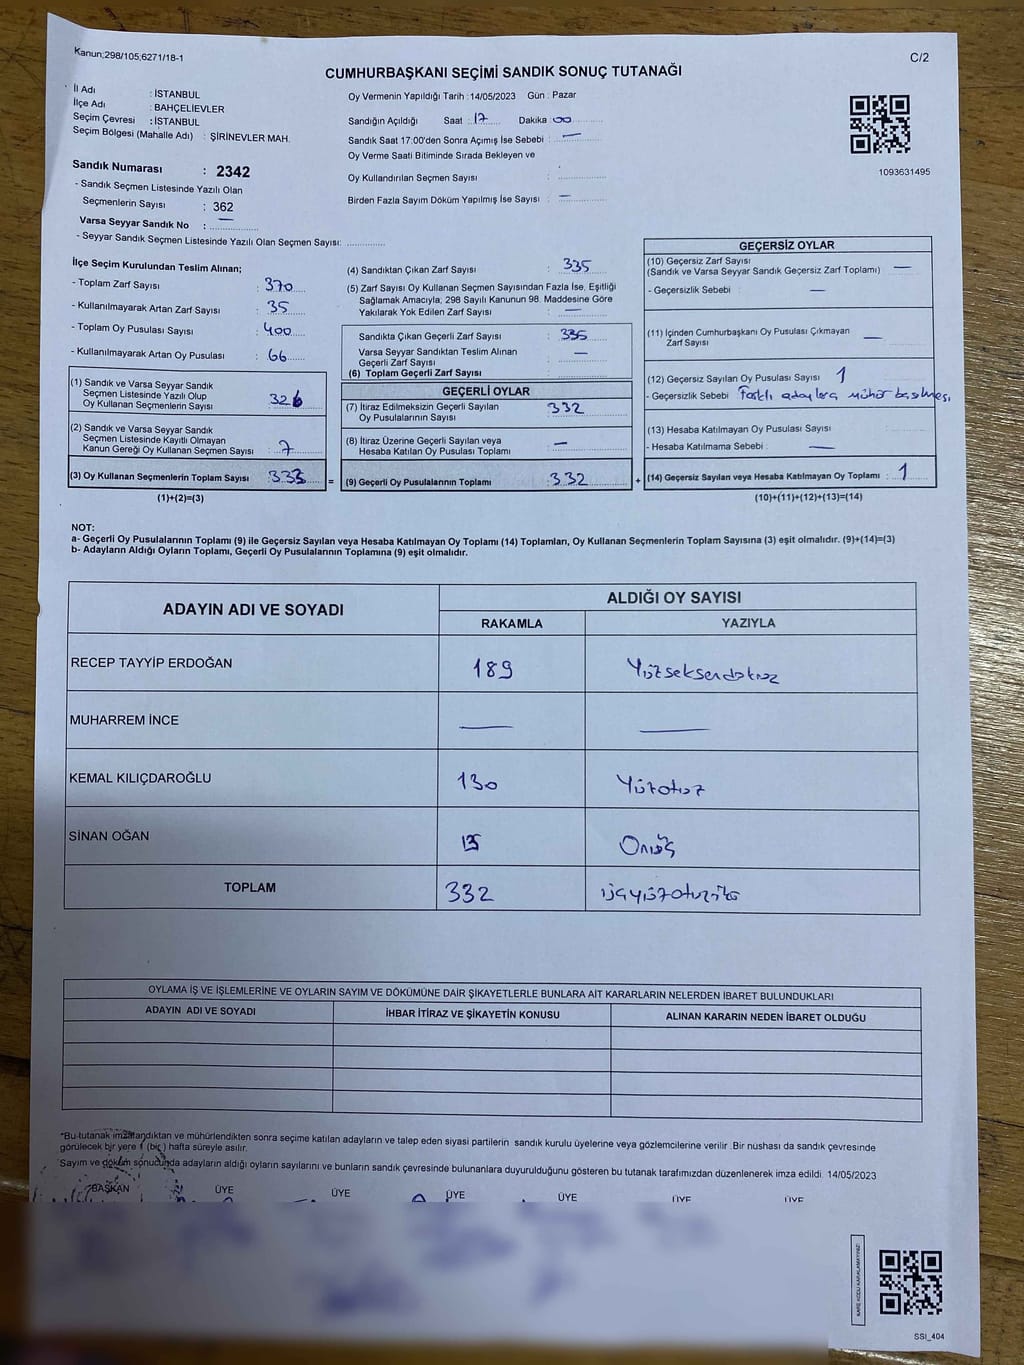 Kanun;298/105;6271/18-1
C/2
CUMHURBAŞKANI SEÇİMİ SANDIK SONUÇ TUTANAĞI
İl Adı : İSTANBUL
İlçe Adı : BAHÇELİEVLER
Seçim Çevresi : İSTANBUL
Seçim Bölgesi (Mahalle Adı) : ŞİRİNEVLER MAH.
Oy Vermenin Yapıldığı Tarih : 14/05/2023 Gün : Pazar
Sandığın Açıldığı Saat : 17 Dakika : 00
Sandık Saat 17:00'den Sonra Açımış İse Sebebi : —
Oy Verme Saati Bitiminde Sırada Bekleyen ve
Oy Kullandırılan Seçmen Sayısı :
Birden Fazla Sayım Döküm Yapılmış İse Sayısı : —
1093631495
Sandık Numarası : 2342
- Sandık Seçmen Listesinde Yazılı Olan
Seçmenlerin Sayısı : 362
Varsa Seyyar Sandık No : —
- Seyyar Sandık Seçmen Listesinde Yazılı Olan Seçmen Sayısı:
İlçe Seçim Kurulundan Teslim Alınan;
- Toplam Zarf Sayısı : 370
- Kullanılmayarak Artan Zarf Sayısı : 35
- Toplam Oy Pusulası Sayısı : 400
- Kullanılmayarak Artan Oy Pusulası : 66
(1) Sandık ve Varsa Seyyar Sandık
Seçmen Listesinde Yazılı Olup
Oy Kullanan Seçmenlerin Sayısı : 326
(2) Sandık ve Varsa Seyyar Sandık
Seçmen Listesinde Kayıtlı Olmayan
Kanun Gereği Oy Kullanan Seçmen Sayısı : 7
(3) Oy Kullanan Seçmenlerin Toplam Sayısı : 333
(1)+(2)=(3)
(4) Sandıktan Çıkan Zarf Sayısı : 335
(5) Zarf Sayısı Oy Kullanan Seçmen Sayısından Fazla İse, Eşitliği
Sağlamak Amacıyla; 298 Sayılı Kanunun 98. Maddesine Göre
Yakılarak Yok Edilen Zarf Sayısı : —
Sandıkta Çıkan Geçerli Zarf Sayısı : 335
Varsa Seyyar Sandıktan Teslim Alınan
Geçerli Zarf Sayısı : —
(6) Toplam Geçerli Zarf Sayısı :
GEÇERLİ OYLAR
(7) İtiraz Edilmeksizin Geçerli Sayılan
Oy Pusulalarının Sayısı : 332
(8) İtiraz Üzerine Geçerli Sayılan veya
Hesaba Katılan Oy Pusulası Toplamı : —
= (9) Geçerli Oy Pusulalarının Toplamı : 332
GEÇERSİZ OYLAR
(10) Geçersiz Zarf Sayısı
(Sandık ve Varsa Seyyar Sandık Geçersiz Zarf Toplamı) —
- Geçersizlik Sebebi : —
(11) İçinden Cumhurbaşkanı Oy Pusulası Çıkmayan
Zarf Sayısı —
(12) Geçersiz Sayılan Oy Pusulası Sayısı : 1
- Geçersizlik Sebebi : Farklı adaylara mühür basılması
(13) Hesaba Katılmayan Oy Pusulası Sayısı :
- Hesaba Katılmama Sebebi : —
+ (14) Geçersiz Sayılan veya Hesaba Katılmayan Oy Toplamı : 1
(10)+(11)+(12)+(13)=(14)
NOT:
a- Geçerli Oy Pusulalarının Toplamı (9) ile Geçersiz Sayılan veya Hesaba Katılmayan Oy Toplamı (14) Toplamları, Oy Kullanan Seçmenlerin Toplam Sayısına (3) eşit olmalıdır. (9)+(14)=(3)
b- Adayların Aldığı Oyların Toplamı, Geçerli Oy Pusulalarının Toplamına (9) eşit olmalıdır.
ADAYIN ADI VE SOYADI
ALDIĞI OY SAYISI
RAKAMLA YAZIYLA
RECEP TAYYİP ERDOĞAN 189 Yüzseksendokuz
MUHARREM İNCE — —
KEMAL KILIÇDAROĞLU 130 Yüzotuz
SİNAN OĞAN 13 Onüç
TOPLAM 332 üçyüzotuziki
OYLAMA İŞ VE İŞLEMLERİNE VE OYLARIN SAYIM VE DÖKÜMÜNE DAİR ŞİKAYETLERLE BUNLARA AİT KARARLARIN NELERDEN İBARET BULUNDUKLARI
ADAYIN ADI VE SOYADI İHBAR İTİRAZ VE ŞİKAYETİN KONUSU ALINAN KARARIN NEDEN İBARET OLDUĞU
*Bu tutanak imzalandıktan ve mühürlendikten sonra seçime katılan adayların ve talep eden siyasi partilerin sandık kurulu üyelerine veya gözlemcilerine verilir .Bir nüshası da sandık çevresinde
görülecek bir yere 1 (bir) hafta süreyle asılır.
Sayım ve döküm sonucunda adayların aldığı oyların sayılarını ve bunların sandık çevresinde bulunanlara duyurulduğunu gösteren bu tutanak tarafımızdan düzenlenerek imza edildi. 14/05/2023
BAŞKAN ÜYE ÜYE ÜYE ÜYE ÜYE ÜYE
KARE KODU KARALAMAYINIZ!
SSI_404